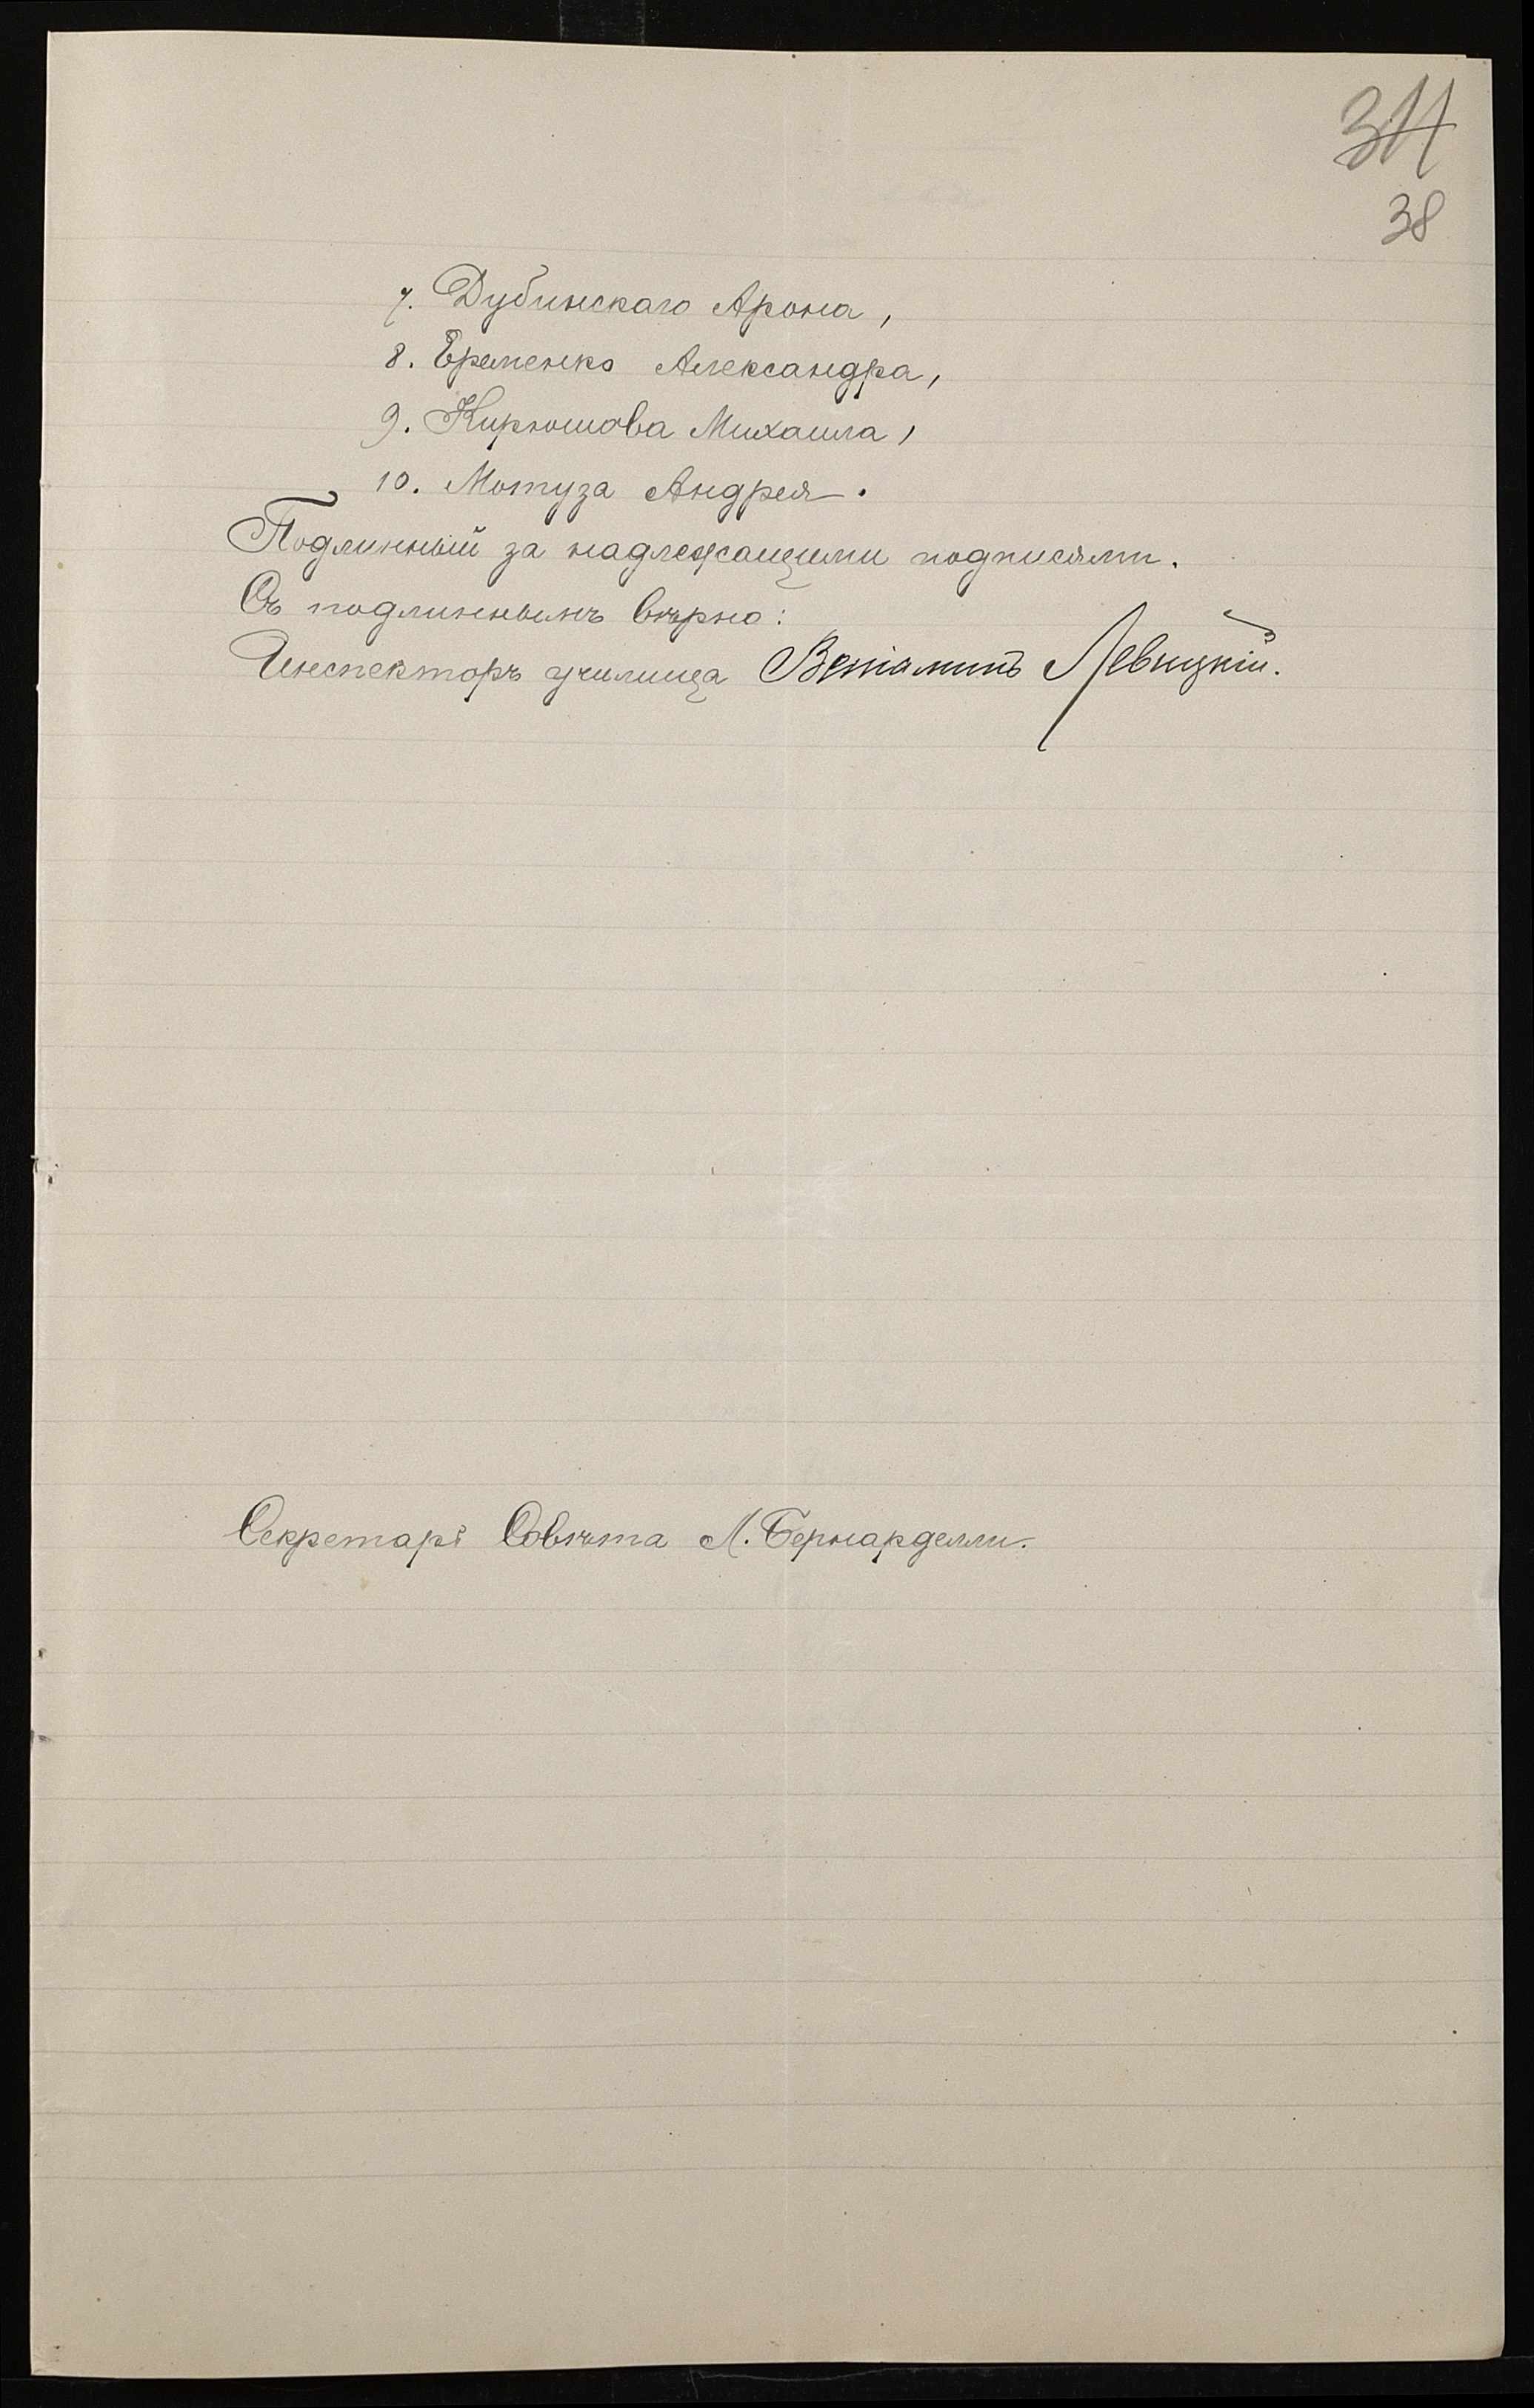 34
38
7. Дубинскаго Арона,
8. Еременко Александра,
9. Кирюшова Михаила,
10. Мотуза Андрея.
Подлинный за надлежащими подписями.
Съ подлиннымъ вѣрно:
Инспекторъ училища Веніаминъ Левицкій.
Секретарь Совѣта Л. Бернарделли.